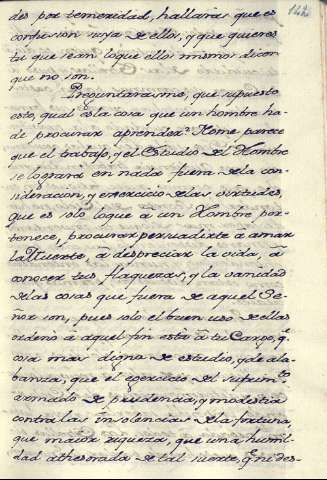 142
des por temeridad, hallaras que es
confusion suya de ellos, y que quieres
tu que sean loque ellos mismos dicen
que no son.
Preguntarasme, que supuesto
esto, qual es la cosa que un hombre ha
de procurar aprender? Nome parece
que el trabajo, y el Estudio del Hombre
se lograrà en nada fuera de la con
sideracion, y exercicio de las virtudes,
que es solo loque à un Hombre per-
tenece, procurar persuadirte à amar
la Muerte, à despreciar la vida, à
conocer tus flaquezas, y la vanidad
de las cosas que fuera de aquel Se-
ñor son, pues solo el buen uso de ellas
ordenò à aquel fin està à tu Cargo, q.e
cosa mas digna de estudio, y de ala-
banza, que el exercicio del sufrim.to
armado de prudencia, y modestia
contra las insolencias de la fortuna,
que maior riqueza, que una humil-
dad athesorada de tal suerte, q.e ni des-